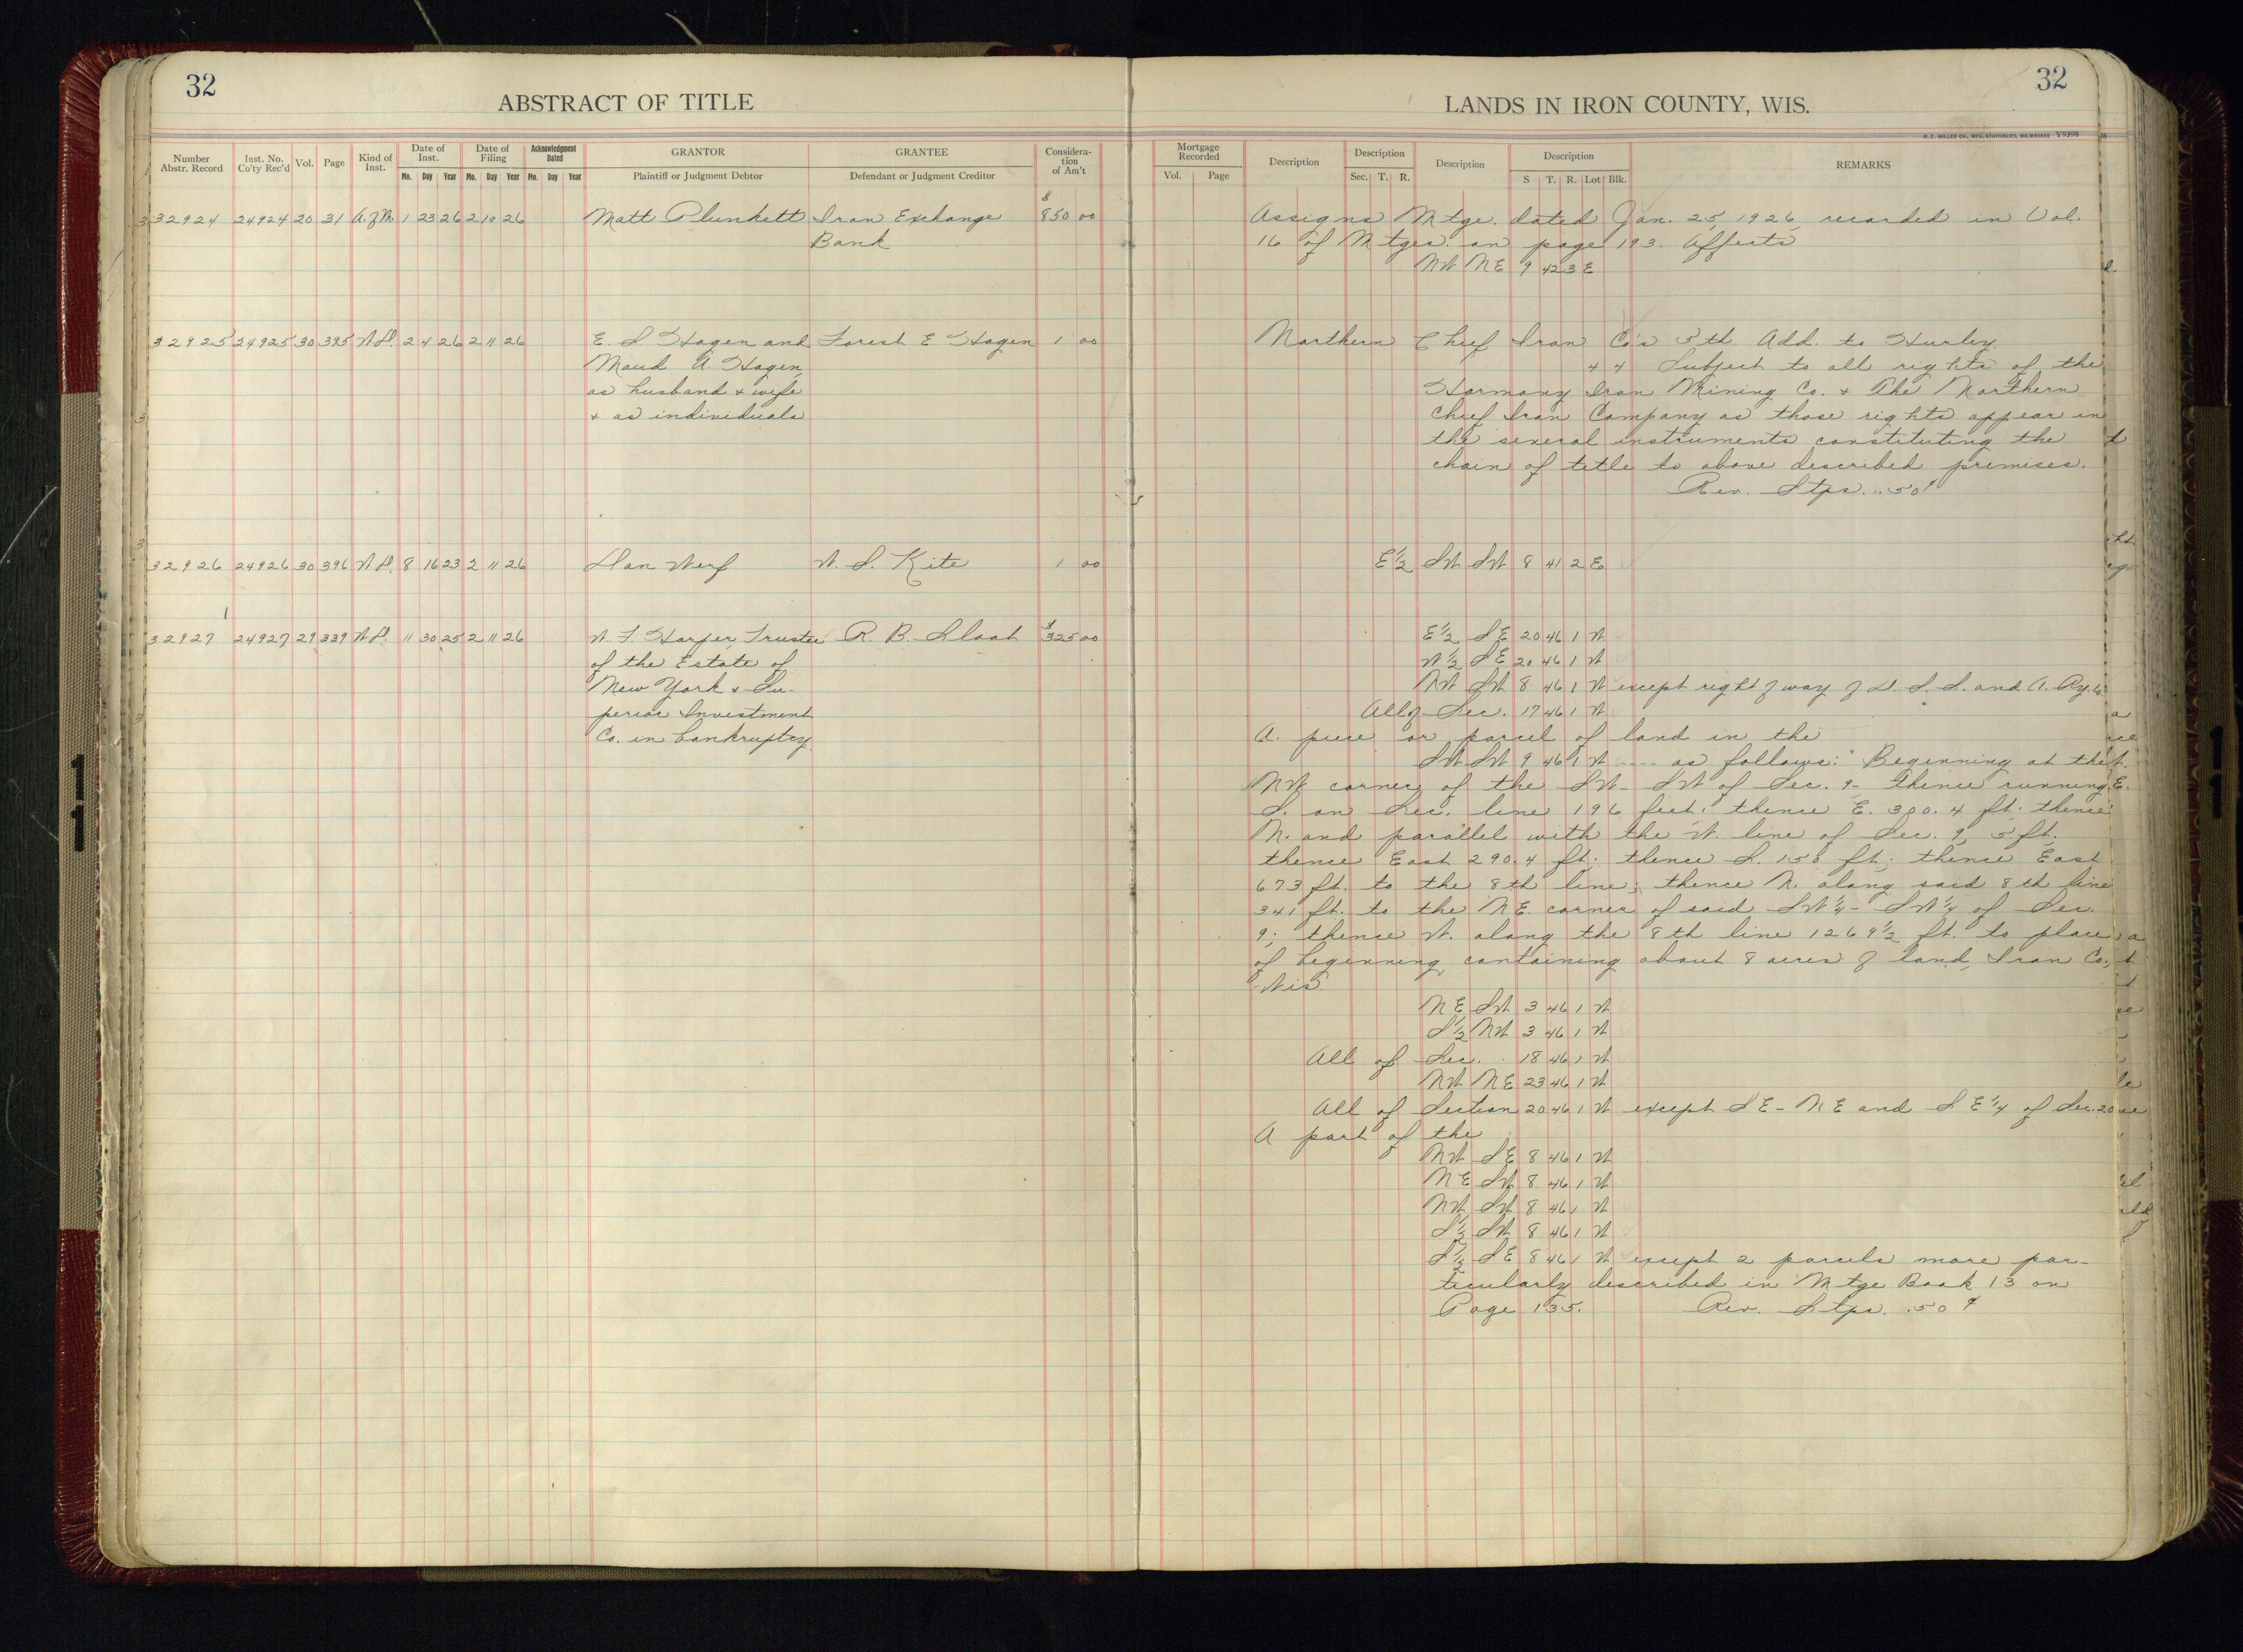 32
ABSTRACT OF TITLE
Number Abstr. Record
Inst. No. Co'ty Rec'd
Vol.
Page
Kind of Inst.
Date of Inst.
Mo. Day Year
Date of Filing
Mo. Day Year
Acknowledgment Dated
Mo. Day Year
GRANTOR
Plaintiff or Judgment Debtor
GRANTEE
Defendant or Judgment Creditor
Consideration of Am't
32924 24924 20 31 A. of M. 1 23 26 2 10 26 Matt Plunkett Iron Exchange $850 00
Bank
32925 24925 30 395 W.D. 2 4 26 2 11 26 E. S Hagen and Forest E Hagen 1 00
Maud A. Hagen,
as husband & wife
& as individuals
32926 24926 30 396 W.D. 8 16 23 2 11 26 Dan Werf W. S. Kite 1 00
32927 24927 29 339 W.D. 11 30 25 2 11 26 W. F. Harper, Trustee R. B. Sloat $325 00
of the Estate of
New York & Su-
perior Investment
Co. in bankruptcy
32
LANDS IN IRON COUNTY, WIS.
H. C. MILLER CO., MFG. STATIONERS, MILWAUKEE Y9398
Mortgage Recorded
Vol. Page
Description
Description
Sec. T. R.
Description
Description
S T. R. Lot Blk.
REMARKS
Assigns Mtge. dated Jan. 25, 1926, recorded in Vol.
16 of Mtges. on page 193. Affects
NW NE 9 42 3 E
Northern Chief Iron Co's 5th Add. to Hurley.
4 4 Subject to all rights of the
Harmony Iron Mining Co. & The Northern
Chief Iron Company as those rights appear in
the several instruments constituting the
chain of title to above described premises.
Rev. Stps. .50¢
E½ SW SW 8 41 2 E
E½ SE 20 46 1 W
W½ SE 20 46 1 W
NW SW 8 46 1 W except right of way of D. S. S. and A. Ry. Co.
All of Sec. 17 46 1 W
A. piece or parcel of land in the
SW SW 9 46 1 W ---- as follows: Beginning at the
NW corner of the SW- SW of Sec. 9- thence running
S. on Sec. line 196 feet; thence E. 300.4 ft. thence
N. and parallel with the W. line of Sec. 9, 5 ft.
thence East 290.4 ft. thence S. 150 ft; thence East
673 ft. to the 8th line; thence N. along said 8th line
341 ft. to the NE. corner of said SW¼- SW¼ of Sec.
9; thence W. along the 8th line 1269½ ft. to place
of beginning, containing about 8 acres of land, Iron Co.,
Wis
NE SW 3 46 1 W
S½ NW 3 46 1 W
All of Sec. 18 46 1 W
NW NE 23 46 1 W
All of Section 20 46 1 W except SE- NE and SE¼ of Sec. 20
A part of the
NW SE 8 46 1 W
NE SW 8 46 1 W
NW SW 8 46 1 W
S½ SW 8 46 1 W
S½ SE 8 46 1 W except 2 parcels more par-
ticularly described in Mtge Book 13 on
Page 135. Rev. Stps. .50¢